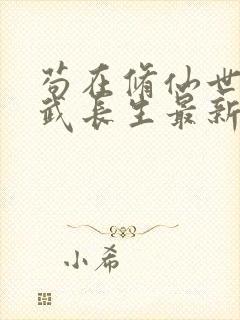 苟在脩仙世
武长生最新
小希